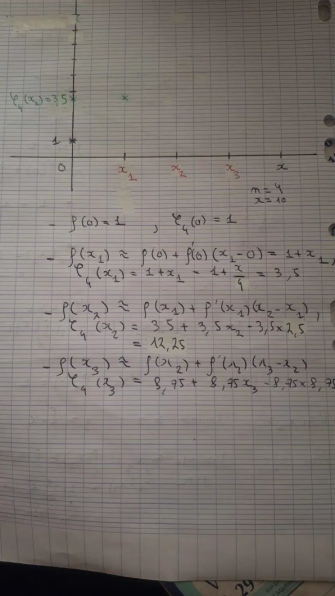 φ₄(x₁)=3,5
1
0 x₁ x₂ x₃ x
n=4
x=10
- f(0)=1 , φ₄(0)=1
- f(x₁) ≈ f(0) + f'(0)(x₁-0) = 1+x₁
φ₄(x₁) = 1+x₁ = 1+x/4 = 3,5
- f(x₂) ≈ f(x₁) + f'(x₁)(x₂-x₁),
φ₄(x₂) = 3.5 + 3,5x₂ - 3,5x2,5
= 12,25
- f(x₃) ≈ f(x₂) + f'(x₂)(x₃-x₂)
φ₄(x₃) = 8,75 + 8,75x₃ - 8,75x8,75
24